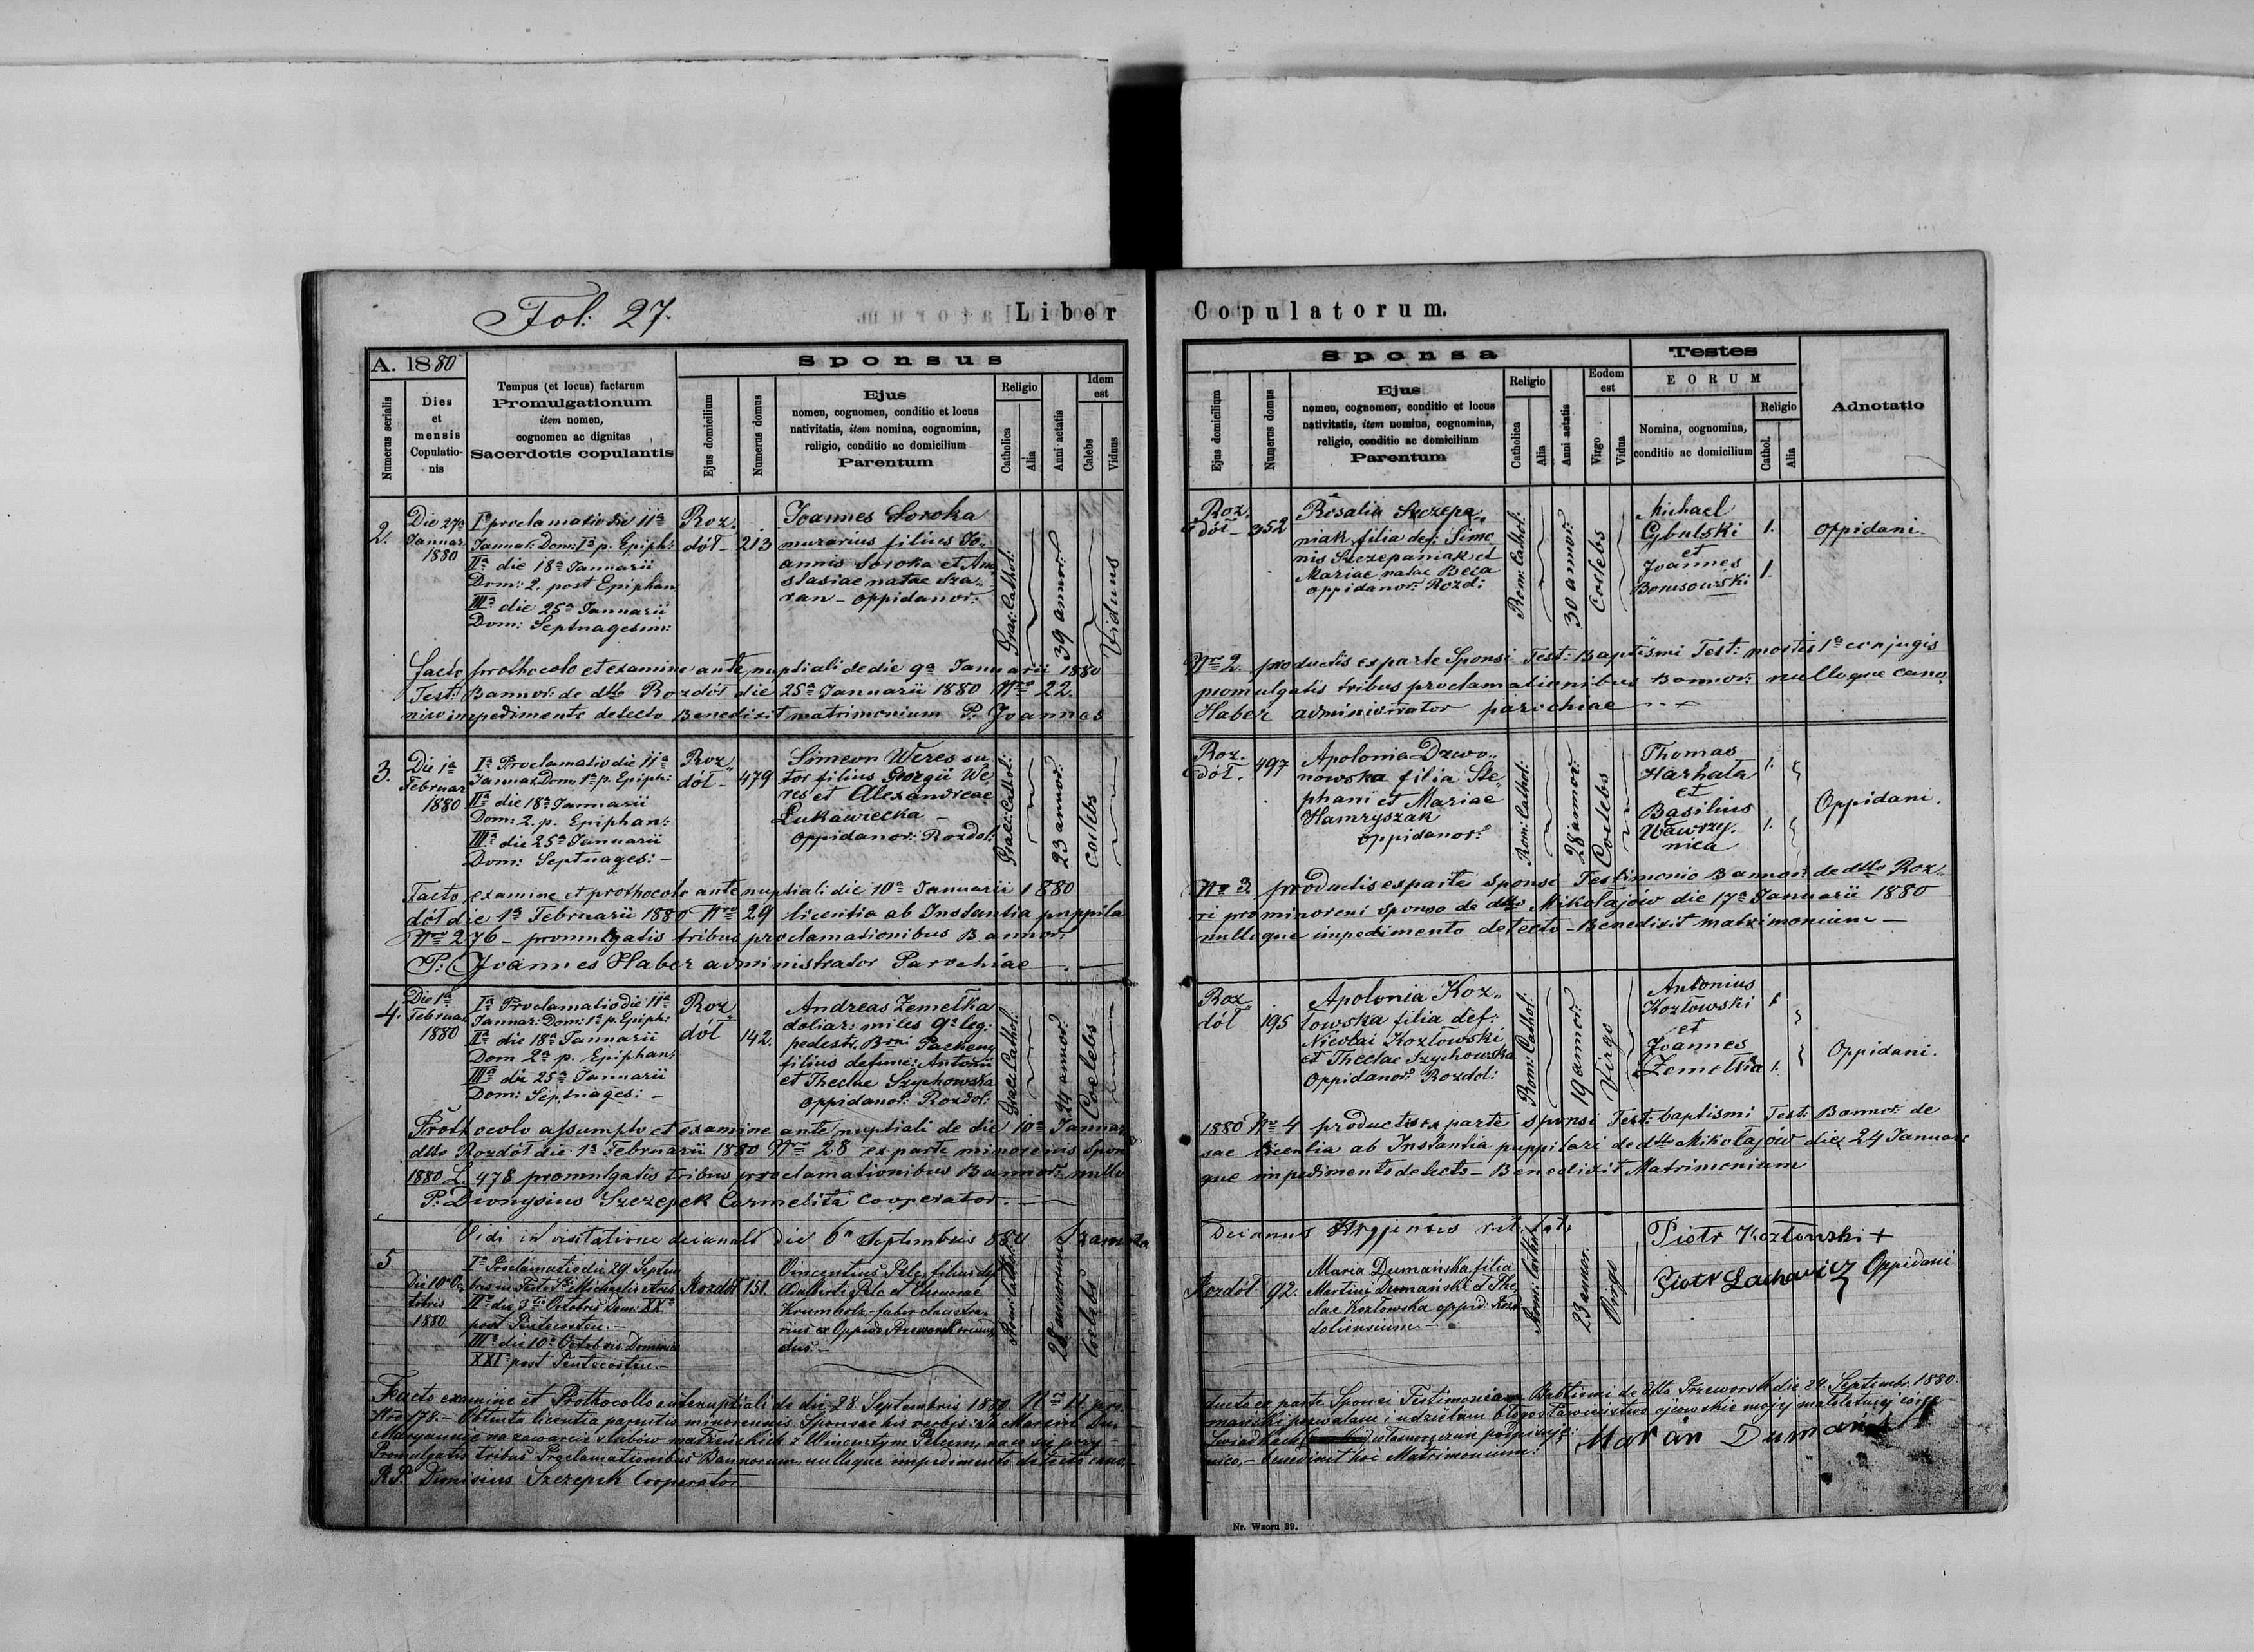 Fol: 27.
Liber Copulatorum.
A. 1880
Sponsus
Numerus serialis
Dies
et
mensis
Copulatio-
nis
Tempus (et locus) factarum
Promulgationum
item nomen,
cognomen ac dignitas
Sacerdotis copulantis
Ejus domicilium
Numerus domus
Ejus
nomen, cognomen, conditio et locus
nativitatis, item nomina, cognomina,
religio, conditio ac domicilium
Parentum
Religio
Catholica
Alia
Anni aetatis
Idem
est
Calebs
Viduus
Sponsa
Ejus domicilium
Numerus domus
Ejus
nomen, cognomen, conditio et locus
nativitatis, item nomina, cognomina,
religio, conditio ac domicilium
Parentum
Religio
Catholica
Alia
Anni aetatis
Eodem
est
Virgo
Vidua
Testes
EORUM
Nomina, cognomina,
conditio ac domicilium
Religio
Cathol.
Alia
Adnotatio
2.
Die 27a
Januar
1880
Ia proclamatio die 11a
Januar: Dom: Ia p. Epiph:
IIa die 18a Januarii
Dom: 2. post Epiphan
IIIa die 25a Januarii
Dom: Septuagesim:
Roz„
dół
213
Joannes Soroka
murarius filius Jo„
annis Soroka et Ana
stasiae natae Sza„
ran - oppidanor:
Graec: Cathol:
39 annor:
Viduus
Roz„
dół
352
Rosalia Szczepa„
niak filia def: Simo
nis Szczepaniak et
Mariae natae Beca
oppidanor: Rozd:
Rom: Cathol:
30 annor:
Coelebs
Michael
Cybulski
et
Joannes
Borusowski
1.
1.
Oppidani.
facto prothocolo et examine ante nuptiali de die 9a Januarii 1880 Nro 2. productis ex parte Sponsi Test: Baptismi Test: mortis 1ae conjugis
Test: Bannor: de dtto Rozdół die 25a Januarii 1880 Nro 22. promulgatis tribus proclamationibus Bannor: nulloque cano„
nico impedimento detecto Benedixit matrimonium P. Joannes Haber administrator parochiae
3.
Die 1a
Februar
1880
Ia Proclamatio die 11a
Januar. Dom: 1a p. Epiph:
IIa die 18a Januarii
Dom: 2. p. Epiphan:
IIIa die 25a Januarii
Dom: Septuages: -
Roz„
dół
479
Simeon Weres su
tor filius Georgii We
res et Alexandreae
Łukawiecka -
oppidanor: Rozdol:
Graec: Cathol:
23 annor:
Coelebs
Roz„
dół.
497
Apolonia Dzwo„
nowska filia Ste„
phani et Mariae
Hamryszak
oppidanor:
Rom: Cathol:
28 annor:
Coelebs
Thomas
Harhata
et
Basilius
Wawrzy„
nica
1.
1.
Oppidani.
Facto examine et prothocolo ante nuptiali die 10a Januarii 1880 Nro 3. productis ex parte Sponsi Testimonio Bannor: de dtto Roz„
dół die 1a Februarii 1880 Nro 29 licentia ab Instantia puppila ri pro minoreni sponso de dtto Mikołajów die 17a Januarii 1880
Nro 276 - promulgatis tribus proclamationibus Bannor: nulloque impedimento detecto - Benedixit matrimonium -
P: Joannes Haber administrator Parochiae
4.
Die 1a
Februar
1880
Ia Proclamatio die 11a
Januar: Dom: 1a p. Epiph:
IIa die 18a Januarii
Dom 2a p. Epiphan:
IIIa die 25a Januarii
Dom: Septuages: -
Roz„
dół
142.
Andreas Zemełka
doliar: miles 9a leg:
pedest. Bni Packeny
filius defunc: Antonii
et Theclae Szychowska
oppidanor: Rozdol:
Graec: Cathol:
24 annor:
Coelebs
Roz
dół
195
Apolonia Koz„
łowska filia def:
Nicolai Kozłowski
et Theclae Szychowska
Oppidanor: Rozdol:
Rom: Cathol:
19 annor:
Virgo
Antonius
Kozłowski
et
Joannes
Zemełka
1.
1.
Oppidani.
Prothocolo assumpto et examine ante nuptiali de die 10a Januar 1880 Nro 4 productis ex parte sponsi Test: baptismi Test: Bannor: de
dtto Rozdół die 1a Februarii 1880 Nro 28 ex parte minorenis spon sae licentia ab Instantia puppilari de dtto Mikołajów die 24 Januar
1880 L. 478 promulgatis tribus proclamationibus Bannor: nullo que impedimento detecto - Benedixit Matrimonium
P: Dionysius Szczepek Carmelita cooperator.
Vidi in visitatione decanali die 6a Septembris 884
Decanus Stryjensis rit. lat.
5.
Die 10a Oc
tobris
1880
Ia Proclamatio die 29 Septem
bris in Festo S. Michaelis Arch
IIa die 3tia Octobris Dom: XXa
post Pentecosten. -
IIIa die 10a Octobris Dominica
XXIa post Pentecosten. -
Rozdół
151.
Vincentius Pelc filius def
Adalberti Pelc et Eleonorae
Krumbolz - faber claustra„
rius ex Oppido Przeworsk oriun
dus. -
Rom: Cathol:
28 annorum
Coelebs
Rozdół
92.
Maria Dumańska filia
Martini Dumański et The„
clae Kozłowska oppid: Roz
doliensium. -
Rom: Cathol:
23 annor.
Virgo
Piotr Kozłowski +
Piotr Lachawicz
Oppidani
Facto examine et Prothocollo antenuptiali de die 28 Septembris 1880. Nro 11 pro„ ducta ex parte Sponsi Testimonium Babtismi de dtto Przeworsk die 24. Septembr. 1880.
Nro 178. - Obtenta licentia parentis minorennis Sponsae his verbis: Ja Marcin Du„ mański pozwalam i udzielam błogosławieństwo ojcowskie mojej małoletniej córce
Maryannie na zawarcie ślubów małżeńskich z Wincentym Pelcem, na co się przy świadkach własnoręcznie podpisuję: Marcin Dumański
Promulgatis tribus Proclamationibus Bannorum, nulloque impedimento detecto cano„ nico, - benedixit hoc Matrimonium.
R.P. Dionisius Szczepek Cooperator.
Nr. Wzoru 39.